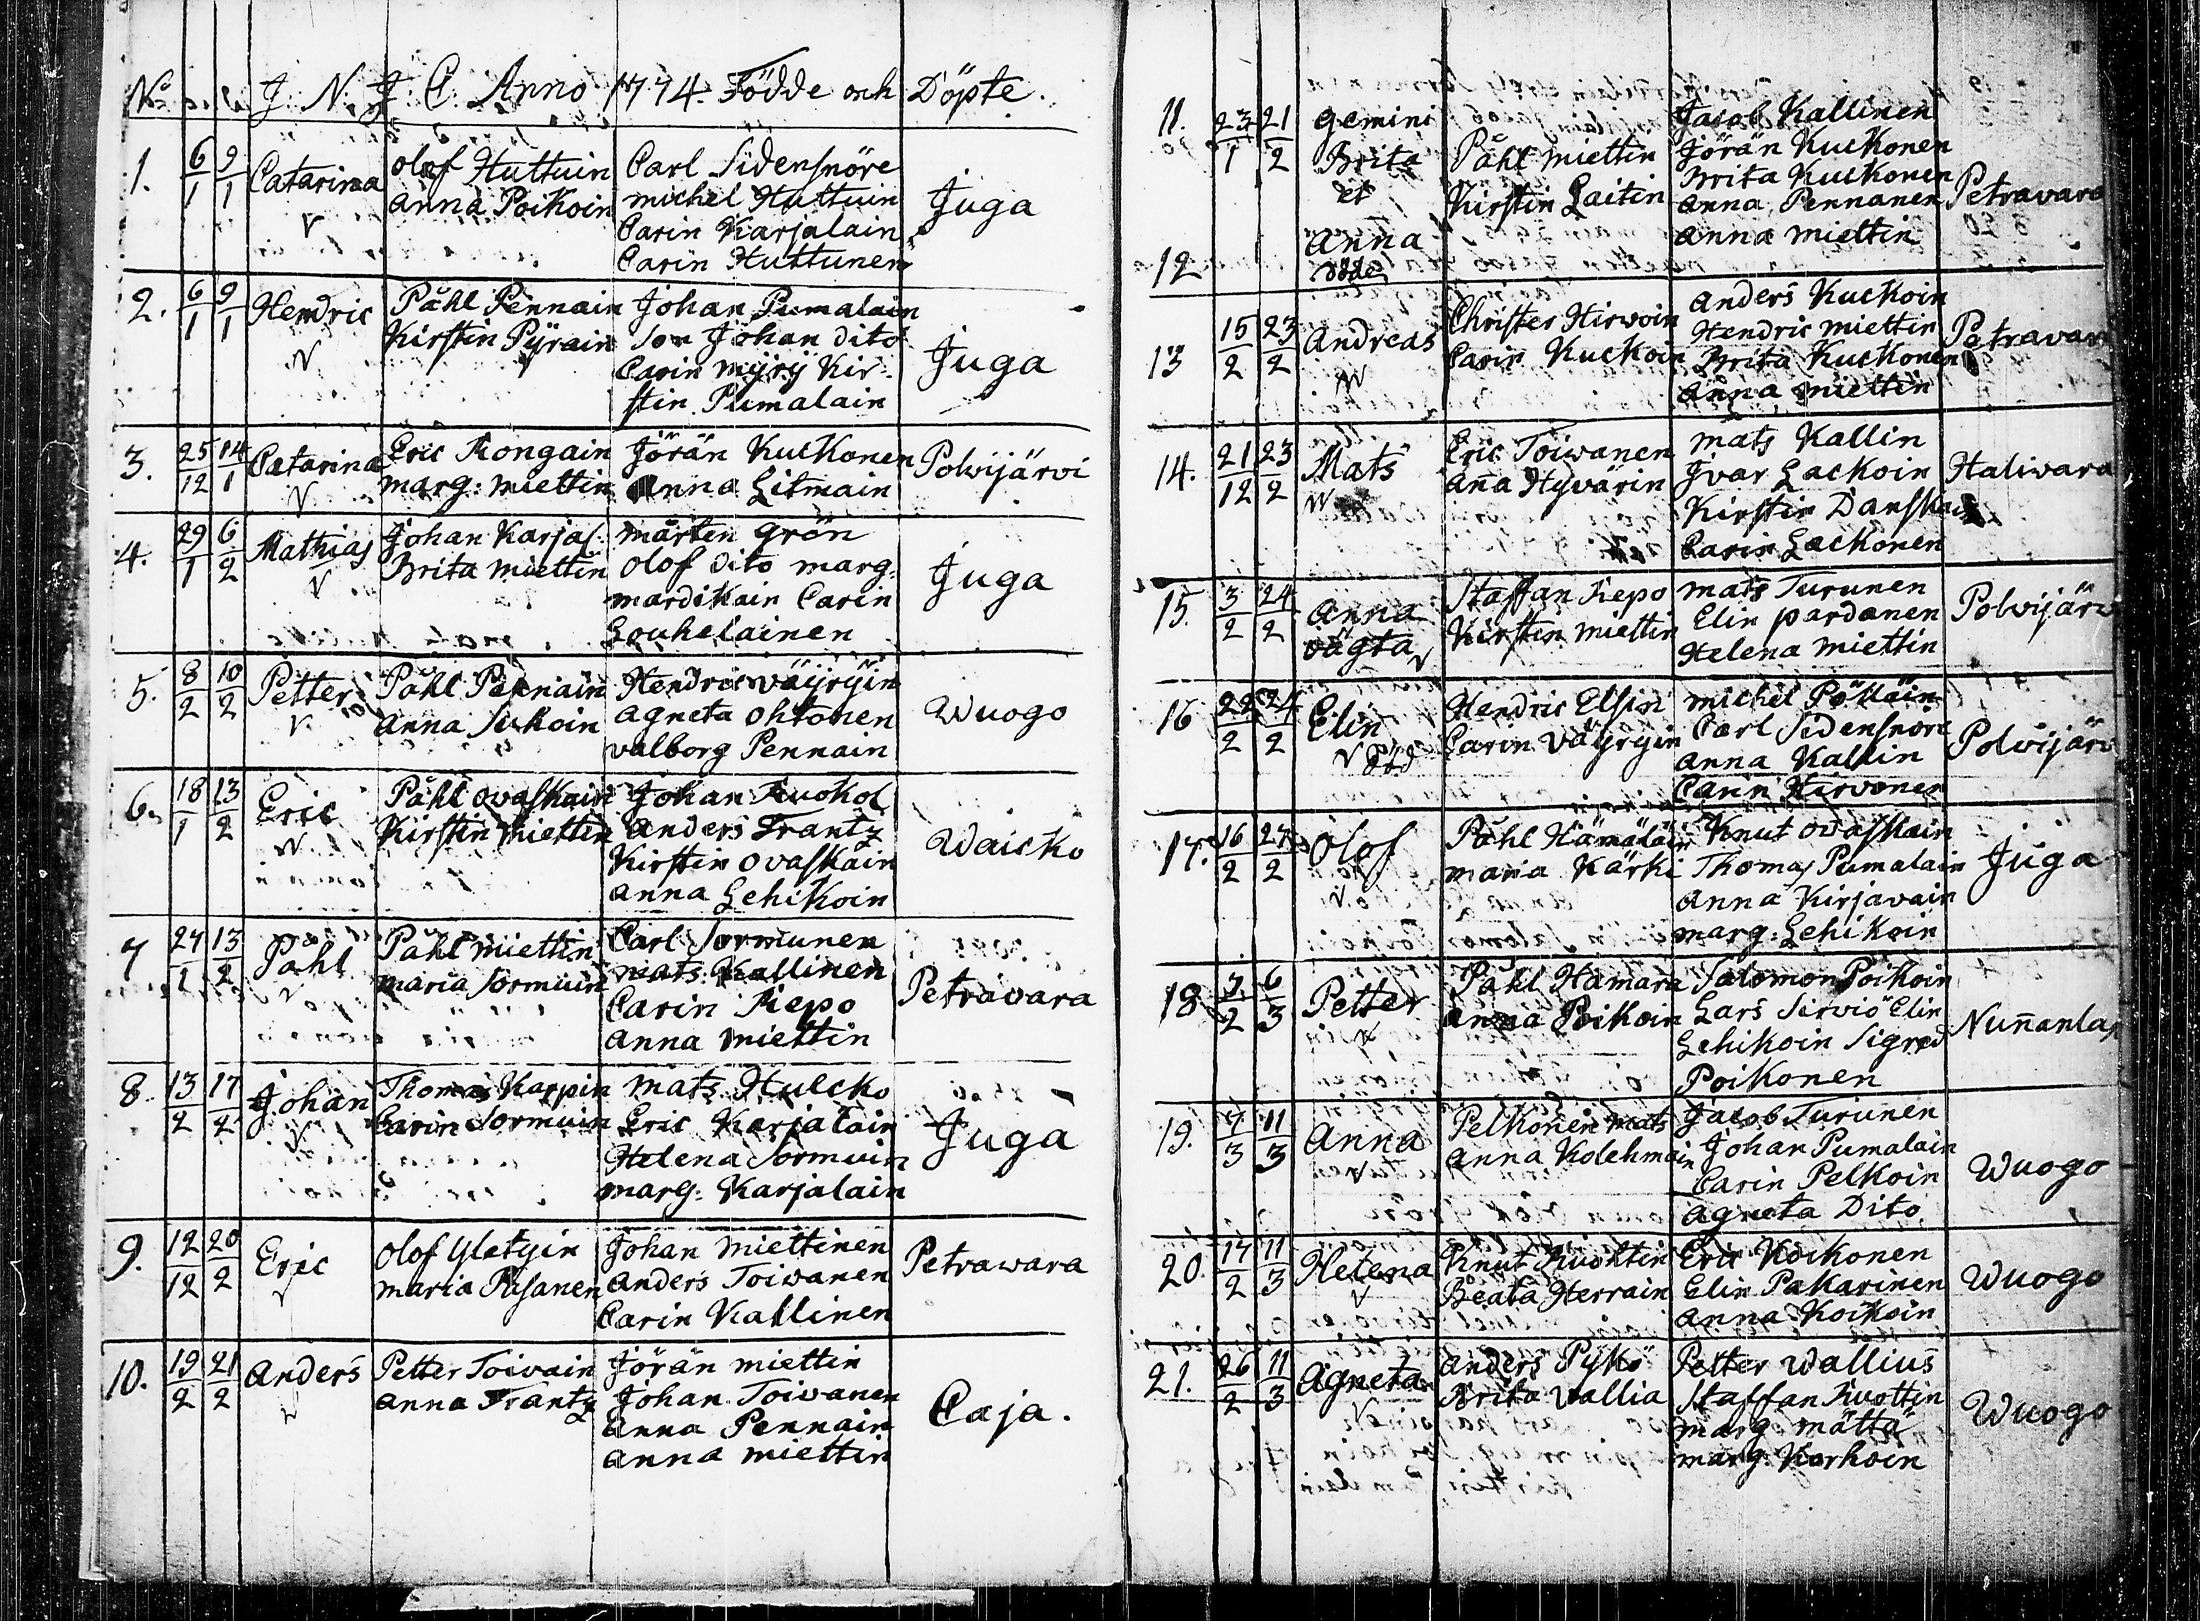 No J. N. J. C. Anno 1774. Födde och Döpte.
1. 6/1 9/1 Catarina Olof Huttuin Carl Sidensnöre
Anna Poikoin michel Huttuin Juga
Carin Karjalain
Carin Huttunen
2. 6/1 9/1 Hendric Påhl Pennain Johan Pumalain
Kirstin Pyrain son Johan dito
Carin myry Kir- Juga
stin Pumalain
3. 25/12 14/1 Catarina Eric Rongain Jörän Kuckonen Polvijärvi
marg: miettin Anna Litmain
4. 29/1 6/2 Mathias Johan Karjal: mårten Grön
Brita miettin Olof dito marg: Juga
mardikain Carin
Louhelainen
5. 8/2 10/2 Petter Påhl Pennain Hendric väyryin
Anna Sukoin Agneta Ohtonen Wuogo
valborg Pennain
6. 18/1 13/2 Eric Påhl Ovaskain Johan Ruokol
Kirstin miettin Anders Frantz
Kirstin Ovaskain Waicko
Anna Lehikoin
7 27/1 13/2 Påhl Påhl miettin Carl Sormunen
maria Sormuin mats Kallinen
Carin Repo Petravara
Anna miettin
8. 13/2 17/2 Johan Thomas Karpin mats Hulcko
Carin Sormuin Eric Karjalain
Helena Sormuin Juga
marg: Karjalain
9. 12/12 20/2 Eric Olof Yletyin Johan miettinen
maria Risanen Anders Toivanen Petrawara
Carin Kallinen
10. 19/2 21/2 Anders Petter Toivain Jörän miettin
Anna Frantz Johan Toivanen
Anna Pennain Caja.
Anna miettin
11. 23/1 21/2 Gemini Jacob Kallinen
Brita Påhl miettin Jörän Kuckonen
et Kirstin Laitin Brita Kuckonen
Anna Pennanen Petravara
12 Anna Anna miettin
döde
13 15/2 23/2 Andreas Christer Hirvoin Anders Kuckoin
Carin Kuckoin Hendric miettin Petravar
Brita Kuckonen
Anna miettin
14. 21/12 23/2 Mats Eric Toiwanen mats Kallin
Aña Hyvärin Ivar Lackoin Haliwara
Kirstin Danska
Carin Lackonen
15. 3/2 24/2 Anna Staffan Repo mats Turunen
oägta Kirstin miettin Elin pardanen Polvijärv
Helena miettin
16 22/2 24/2 Elin Hendric Elsin michel Pölläin
död Carin Väyryin Carl Sidensnöre
Anna Kallin Polvijärv
Carin Hirvonen
17. 16/2 27/2 Olof Påhl Hämäläin Knut Ovaskain
maria Kärki Thomas Pumalain Juga
Anna Kirjavain
marg: Lehikoin
18 7/2 6/3 Petter Påhl Hamara Salomon Poikoin
Anna Poikoin Lars Sirviö Elin Nuñanlax
Lehikoin Sigred
Poikonen
19. 7/3 11/3 Anna Pelkonen mats Jacob Turunen
Anna Kolehmain Johan Pumalain
Carin Pelkoin Wuogo
Agneta Dito
20. 17/2 11/3 Helena Knut Ruohtin Eric Koikonen
Beata Herrain Elin Pakarinen Wuogo
Anna Koikoin
21. 26/2 11/3 Agneta Anders Pykö Petter Wallius
Brita Vallia Staffan Ruottin
marg mättä Wuogo
marg Korhoin